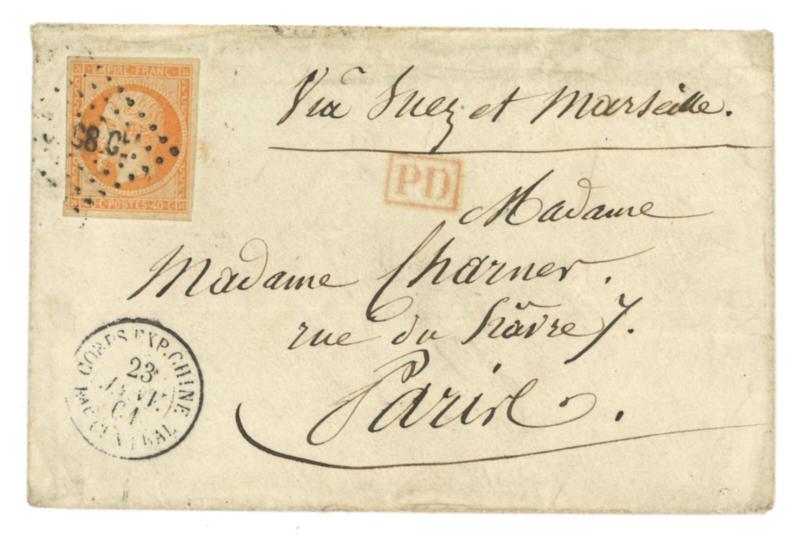 EMPIRE FRANC
CB.C
40 C POSTES 40 C
Via Suez et Marseille.
PD
Madame
Madame Charner.
rue du Hâvre 7.
Paris.
CORPS EXP. CHINE
23
JANV.
61
BAU CENTRAL